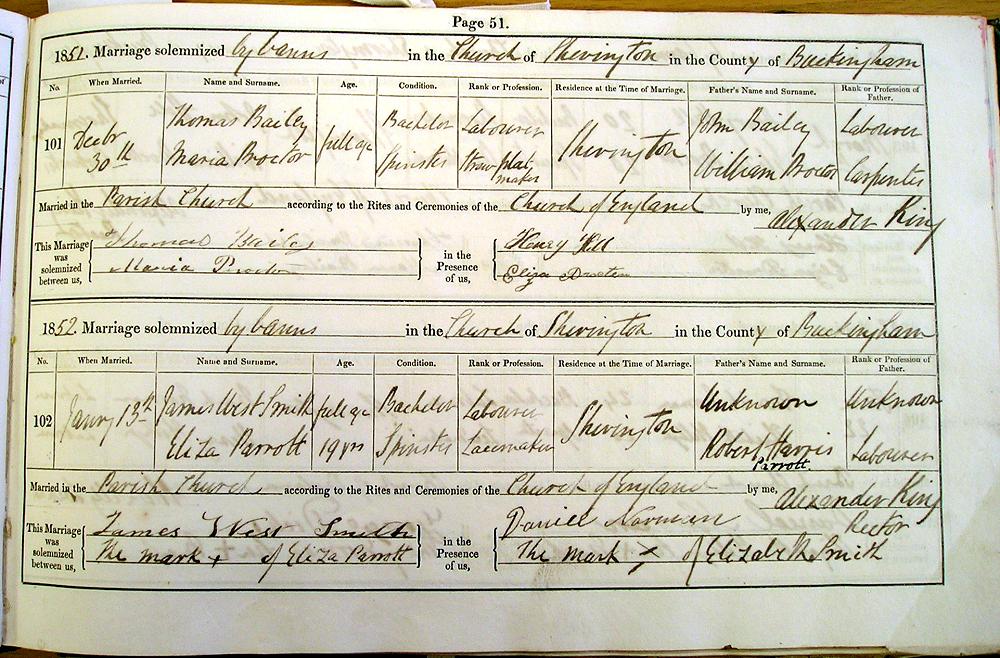 Page 51.
1851. Marriage solemnized by banns in the Church of Shevington in the County of Buckingham
No. When Married. Name and Surname. Age. Condition. Rank or Profession. Residence at the Time of Marriage. Father's Name and Surname. Rank or Profession of Father.
Thomas Bailey full age Bachelor Labourer John Bailey Labourer
101 Decbr 30th Shevington
Maria Proctor Spinster Straw plat maker William Proctor Carpenter
Married in the Parish Church according to the Rites and Ceremonies of the Church of England by me, Alexander King
This Marriage was solemnized between us, Thomas Bailey in the Presence of us, Henry Hill
Maria Proctor Eliza
1852. Marriage solemnized by banns in the Church of Shevington in the County of Buckingham
No. When Married. Name and Surname. Age. Condition. Rank or Profession. Residence at the Time of Marriage. Father's Name and Surname. Rank or Profession of Father.
James West Smith full age Bachelor Labourer Unknown Unknown
102 Janry 13th Shevington
Eliza Parrott 19 yrs Spinster Lacemaker Robert Harris Parrott Labourer
Married in the Parish Church according to the Rites and Ceremonies of the Church of England by me, Alexander King
Rector
This Marriage was solemnized between us, James West Smith in the Presence of us, Daniel Norman
The mark x of Eliza Parrott The mark x of Elizabeth Smith